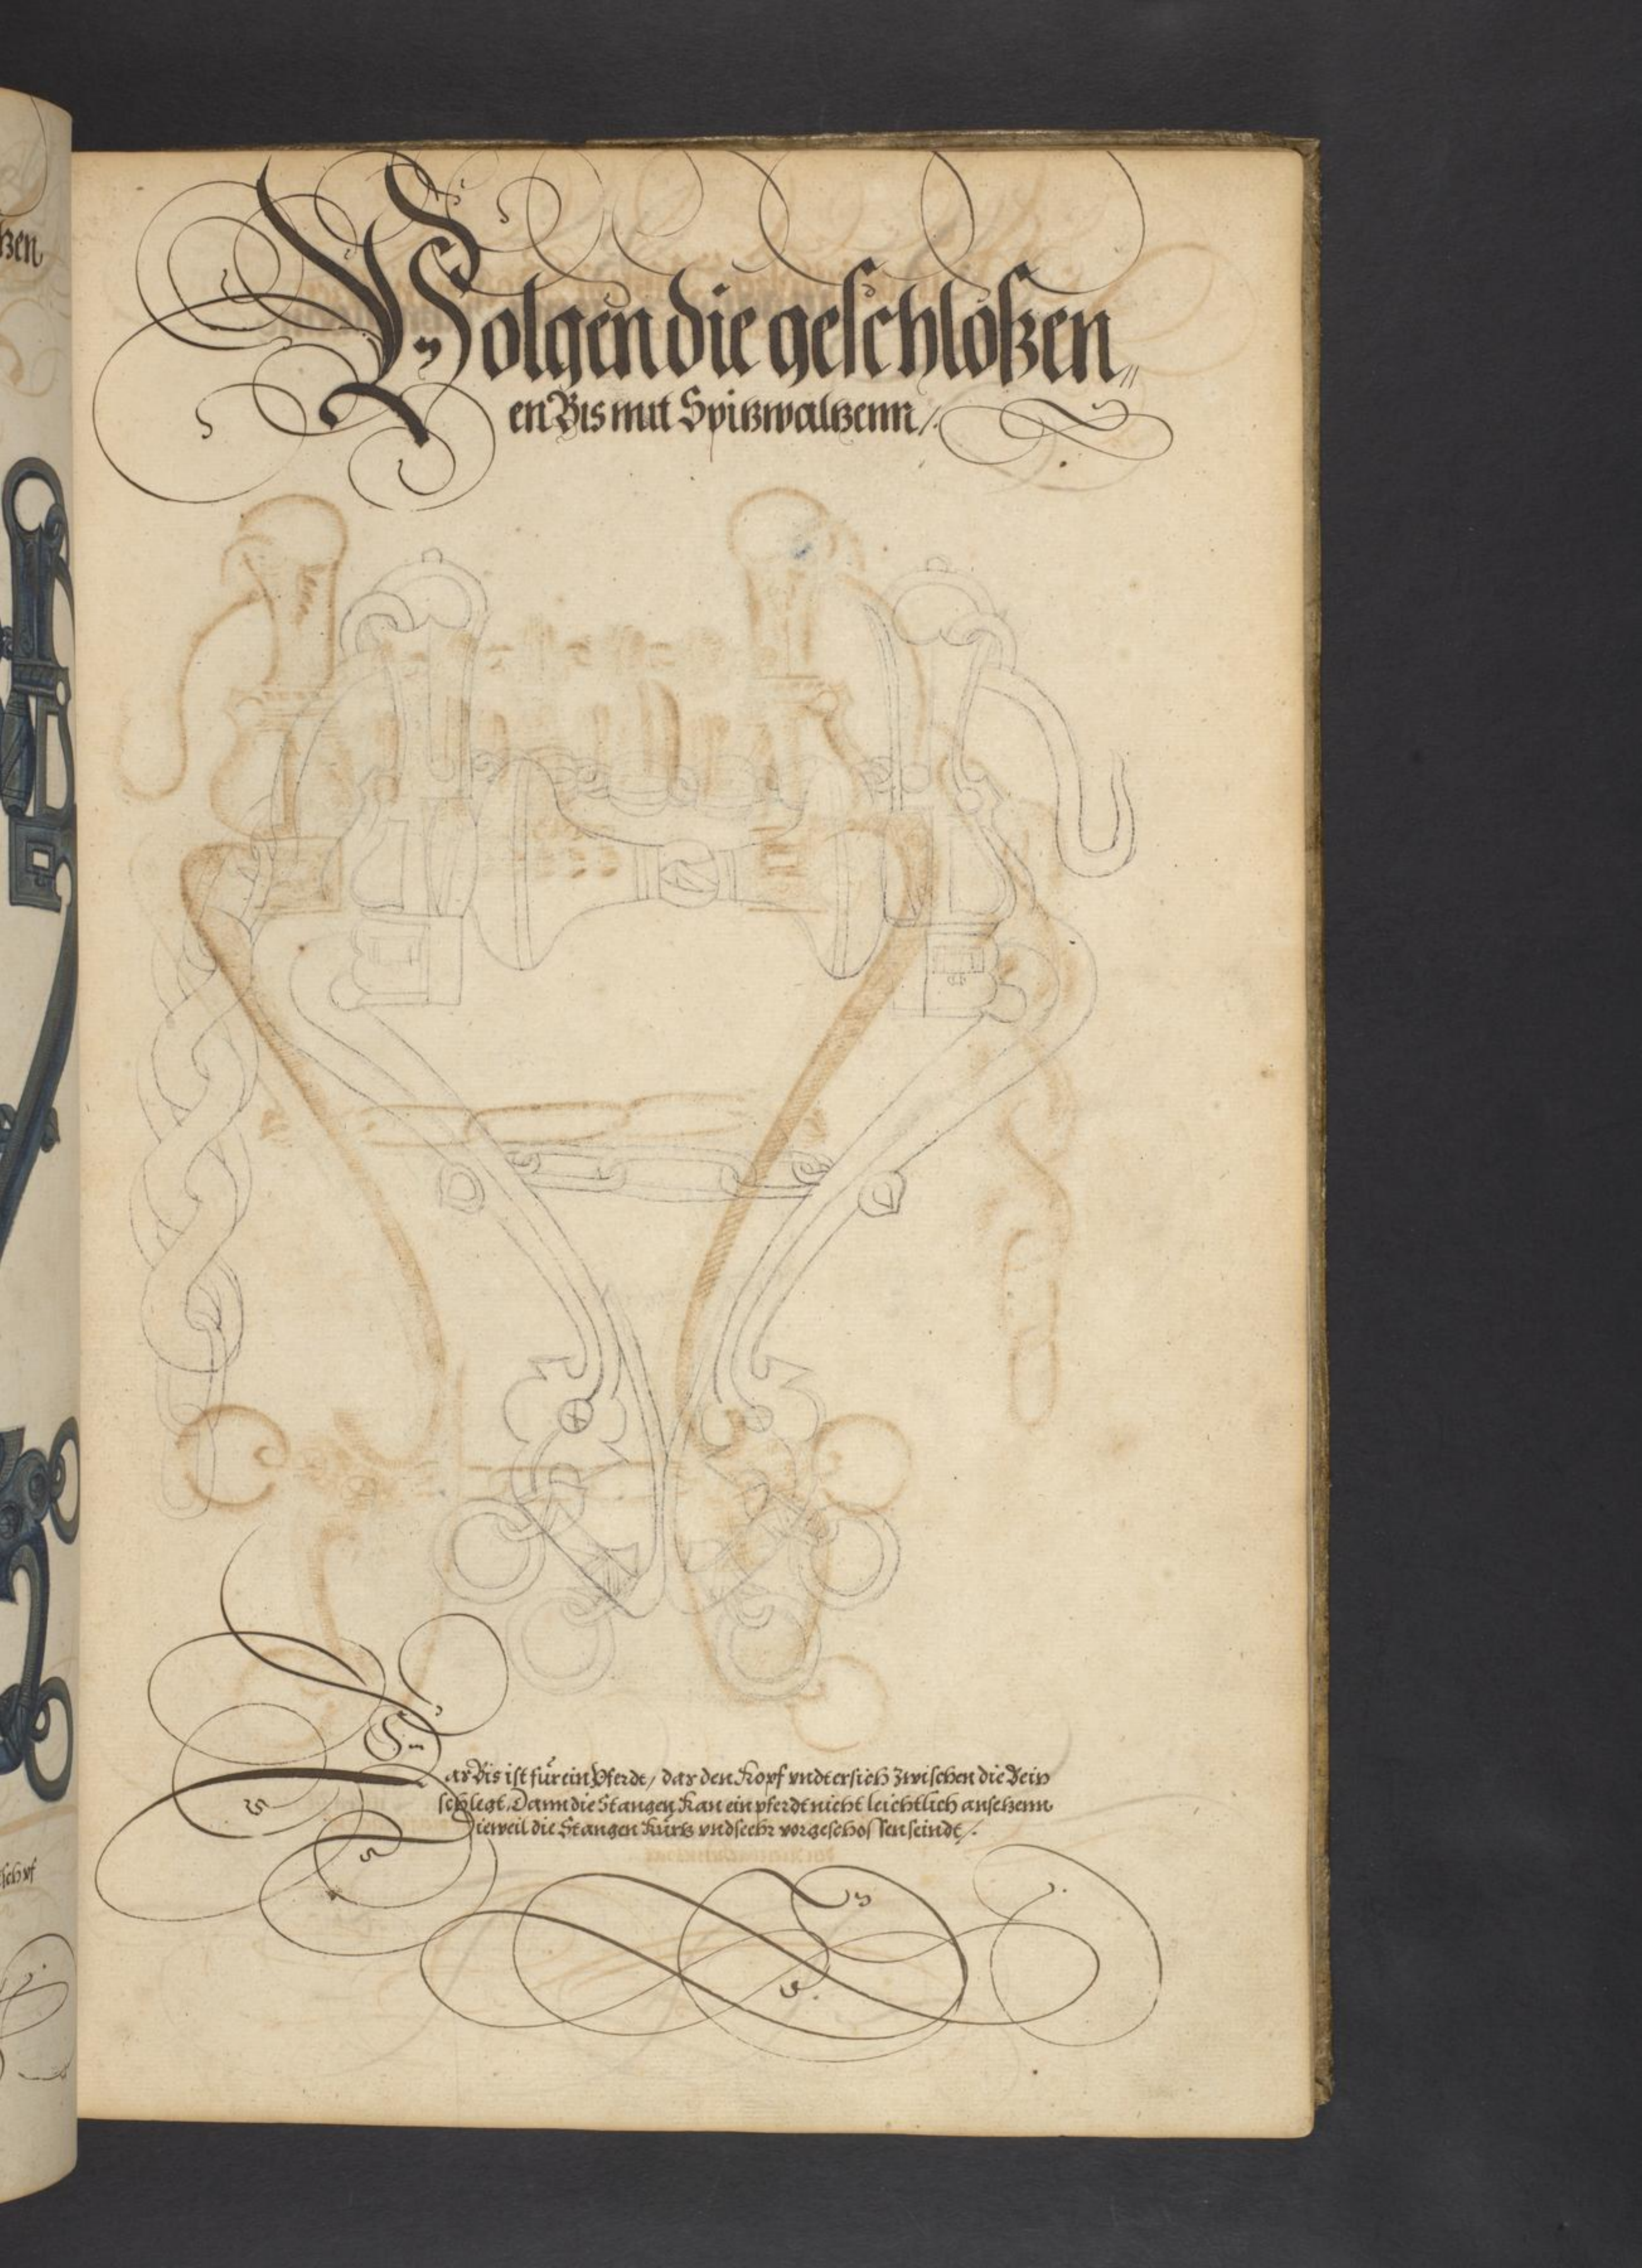 Volgen die geschloßen„
en Bis mit Spitzwaltzenn /.
Das Bis ist für ein Pferdt / das den Kopf vndtersich zwischen die Bein
schlegt, Dann die Stangen Kan ein pferdt nicht leichtlich ansetzenn
Dieweil die Stangen Kurtz vnd seehr vorgeschossen seindt /.
tzen